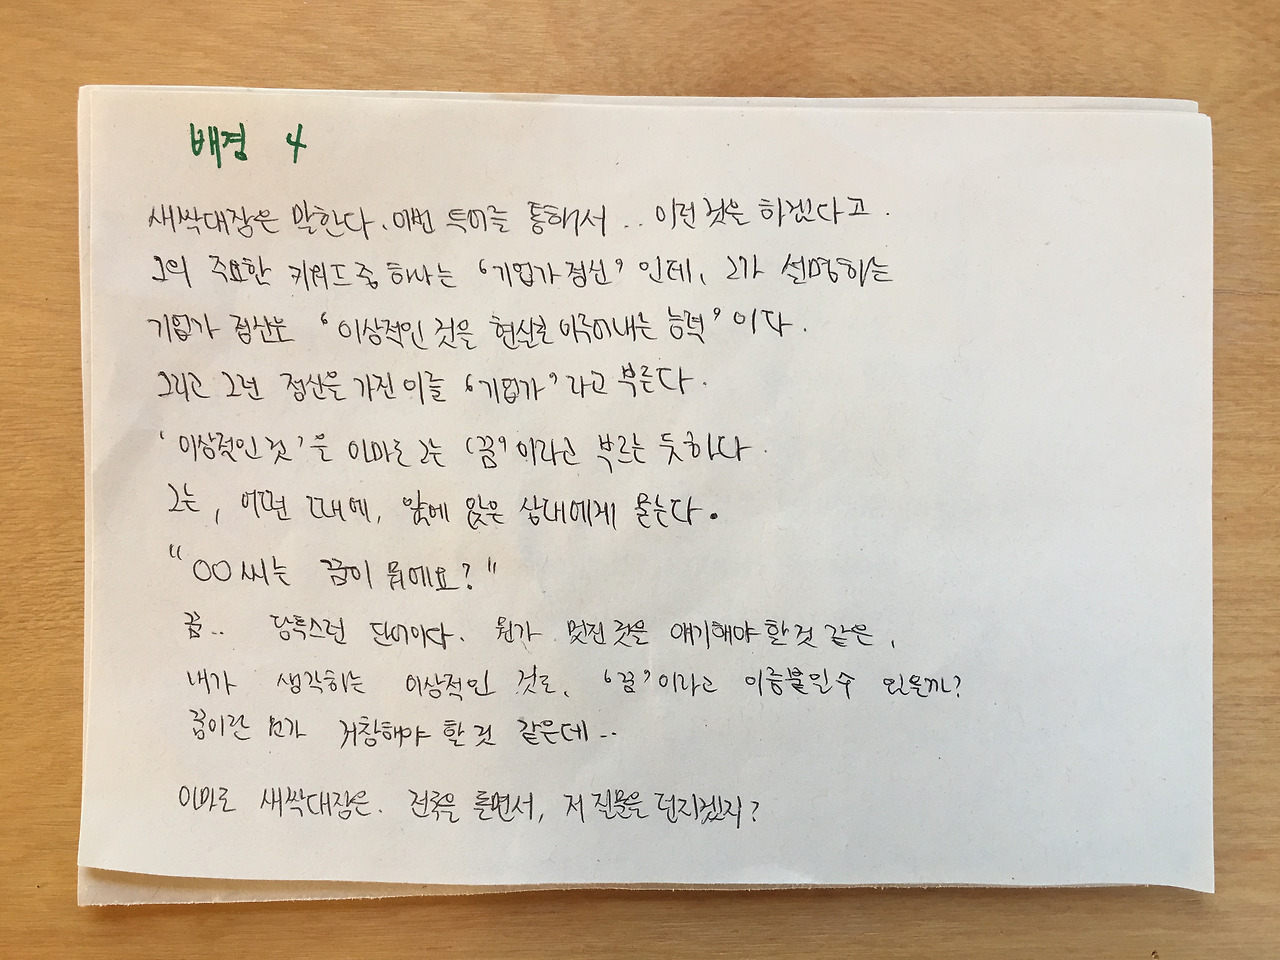 배경 4
새싹대장은 말한다. 이번 투어를 통해서 .. 이런 것을 하겠다고.
그의 주요한 키워드 중 하나는 '기업가 정신' 인데, 그가 설명하는
기업가 정신은 '이상적인 것을 현실로 이루어내는 능력' 이다.
그리고 그런 정신을 가진 이를 '기업가' 라고 부른다.
'이상적인 것' 을 아마도 그는 '꿈' 이라고 부르는 듯하다.
그는, 어떤 때에, 앞에 앉은 상대에게 묻는다.
"OO씨는 꿈이 뭐에요?"
꿈.. 당혹스런 단어이다. 뭔가 멋진 것을 얘기해야 할 것 같은,
내가 생각하는 이상적인 것도, '꿈' 이라고 이름붙일 수 있을까?
꿈이란 뭔가 거창해야 할 것 같은데..
아마도 새싹대장은. 전국을 돌면서, 저 질문을 던지겠지?